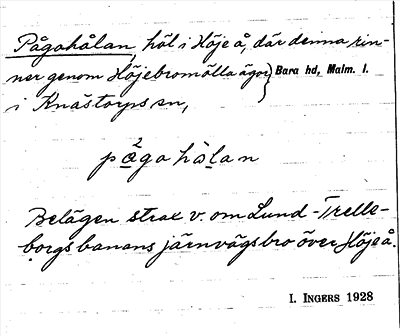 Pågahålan, höl i Höje å, där denna rin-
ner genom Höjebromölla ägor } Bara hd, Malm. l.
i Knästorps sn,
på²ga hålan
Belägen strax v. om Lund-Trelle-
borgsbanans järnvägsbro över Höje å.
I. INGERS 1928